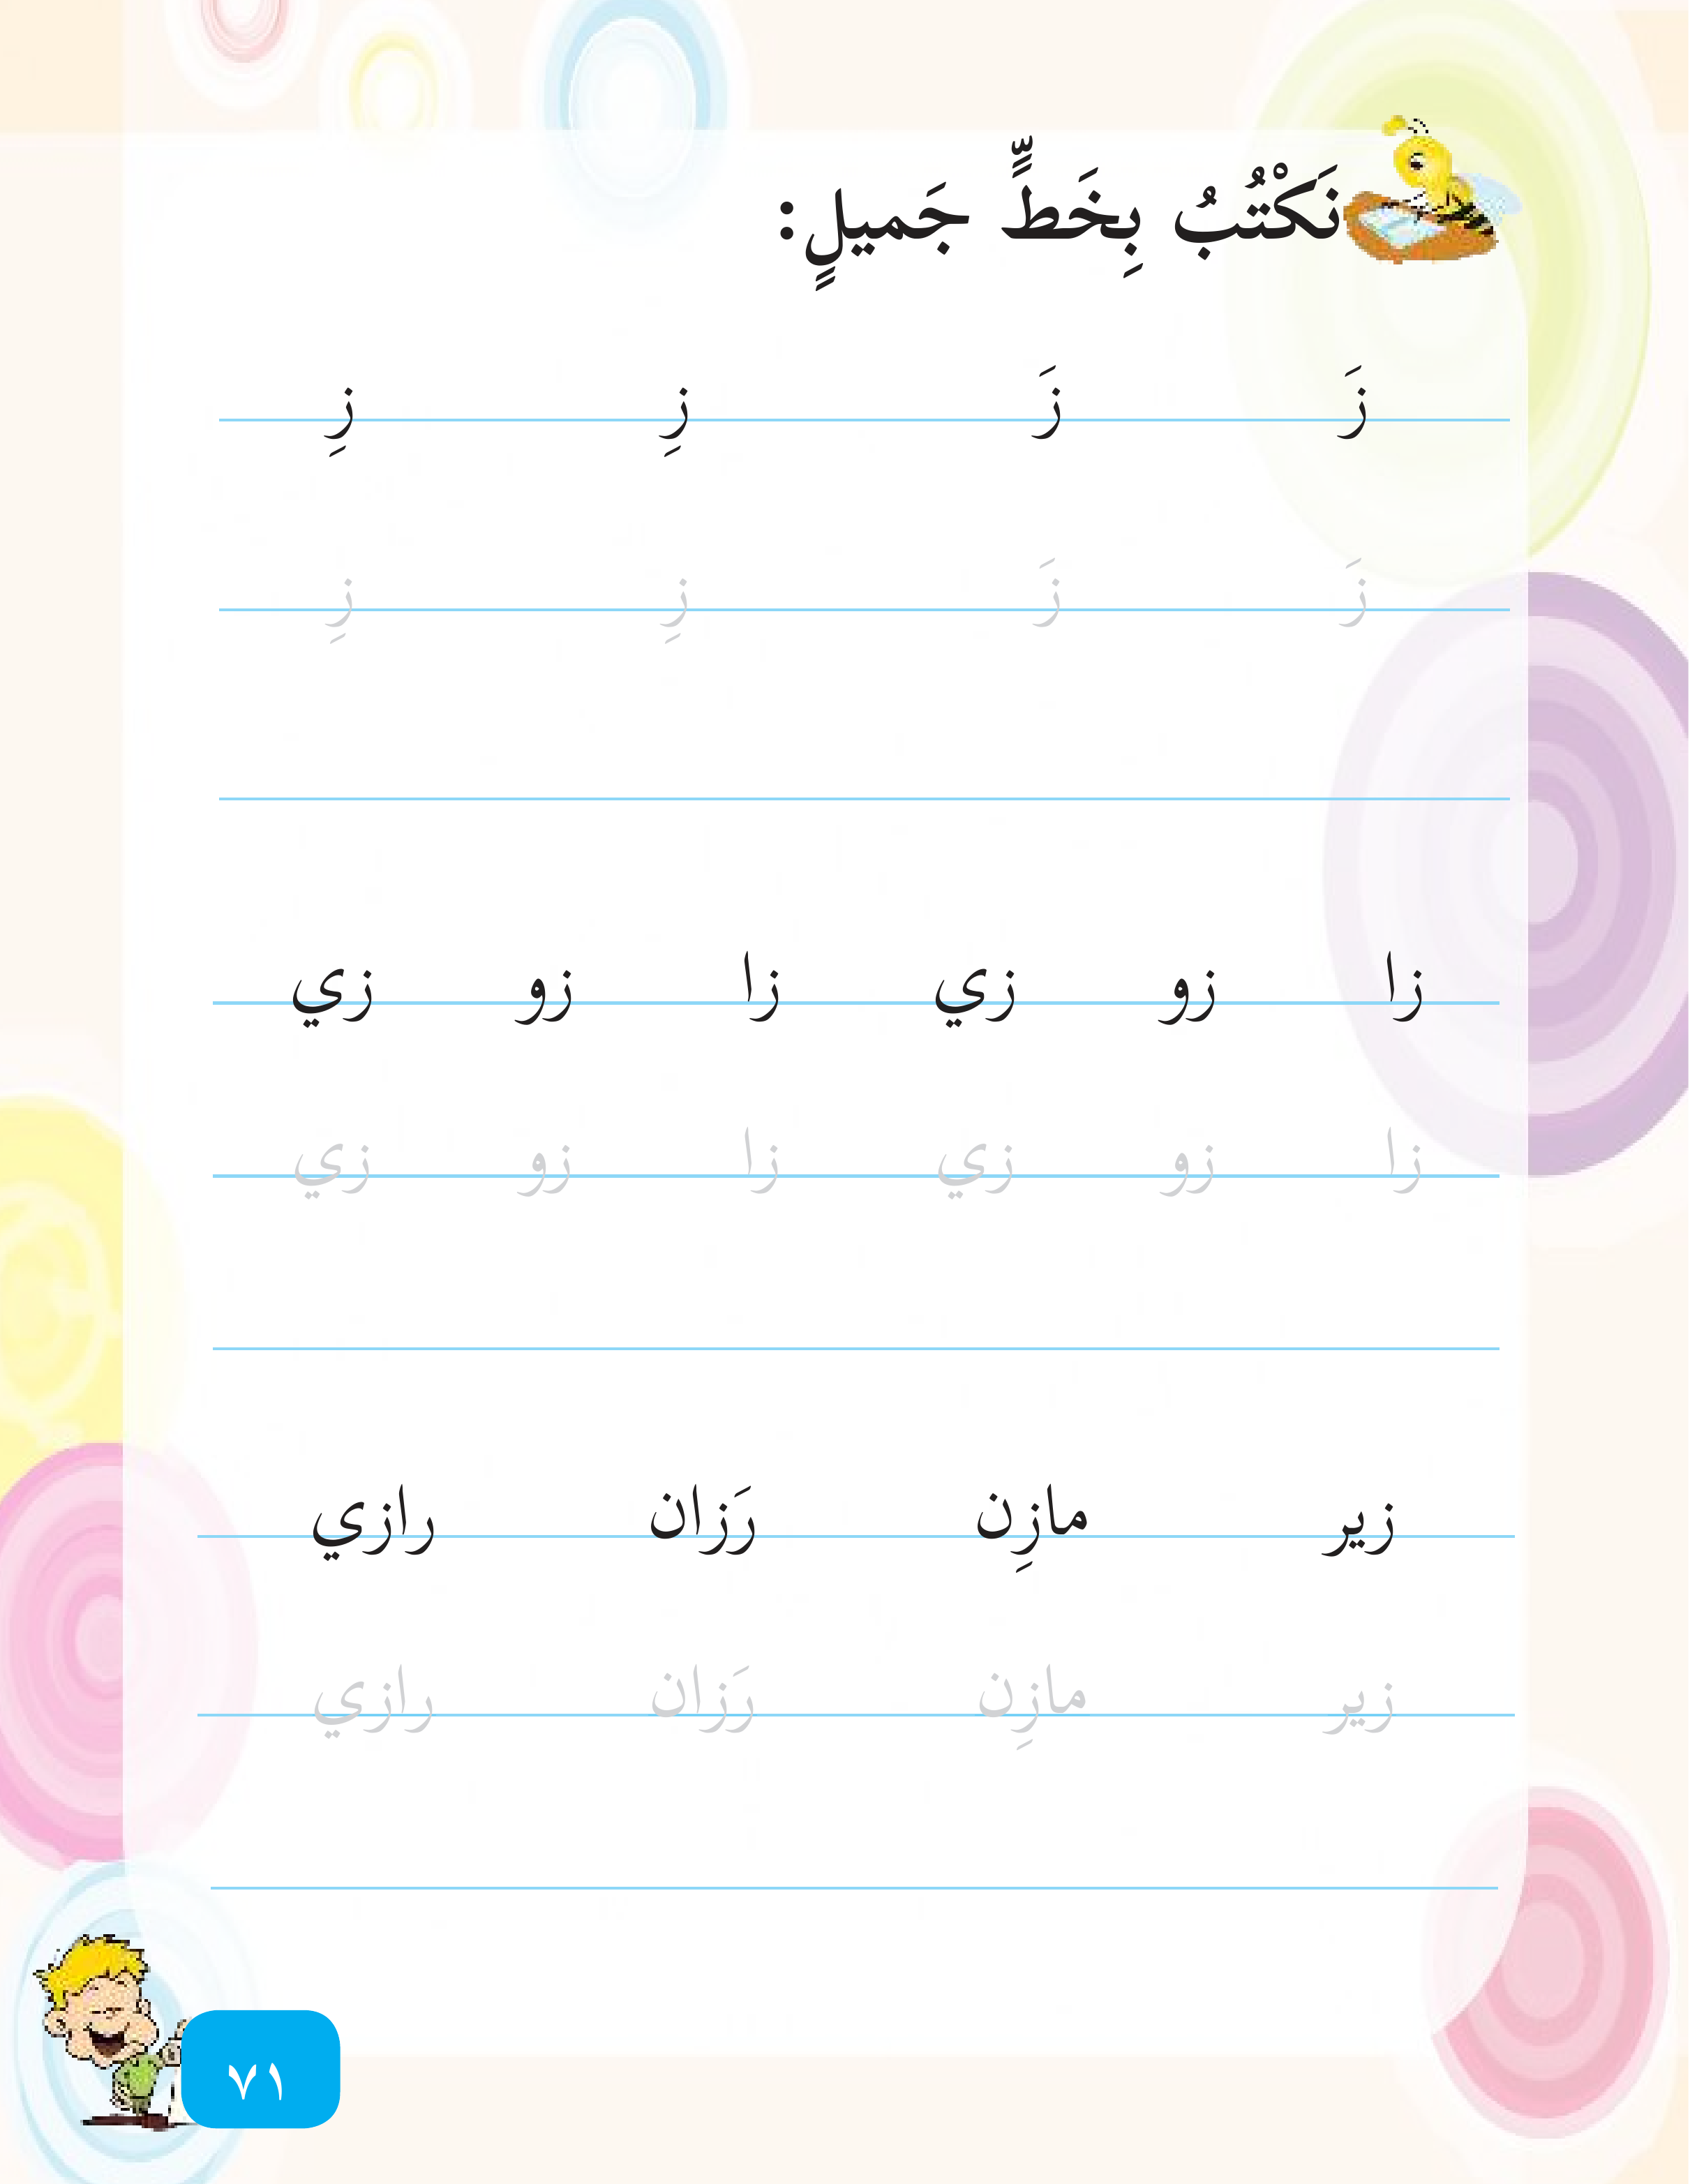 نَكْتُبُ بِخَطٍّ جَميلٍ:
زَ زَ زِ زِ
زَ زَ زِ زِ
زا زو زي زا زو زي
زا زو زي زا زو زي
زير مازِن رَزان رازي
زير مازِن رَزان رازي
٧١